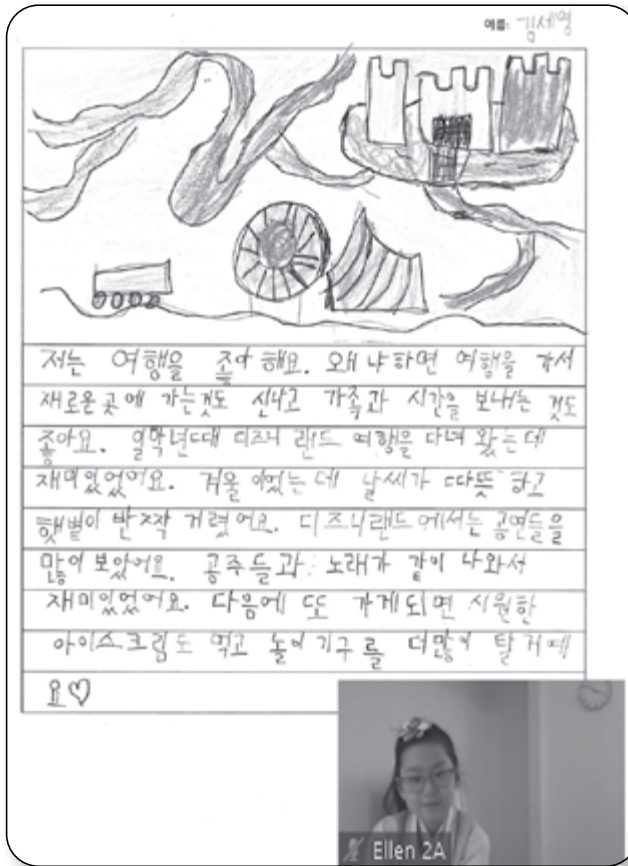 이름: 김세영
저는 여행을 좋아해요. 왜냐하면 여행을 가서
새로운 곳에 가는것도 신나고 가족과 시간을 보내는 것도
좋아요. 일학년때 디즈니랜드 여행을 다녀 왔는데
재미있었어요. 겨울 이었는데 날씨가 따뜻 하고
햇볕이 반짝 거렸어요. 디즈니랜드에서는 공연들을
많이 보았어요. 공주들과 노래가 같이 나와서
재미있었어요. 다음에 또 가게되면 시원한
아이스크림도 먹고 놀이기구를 더많이 탈거예
요♡
Ellen 2A